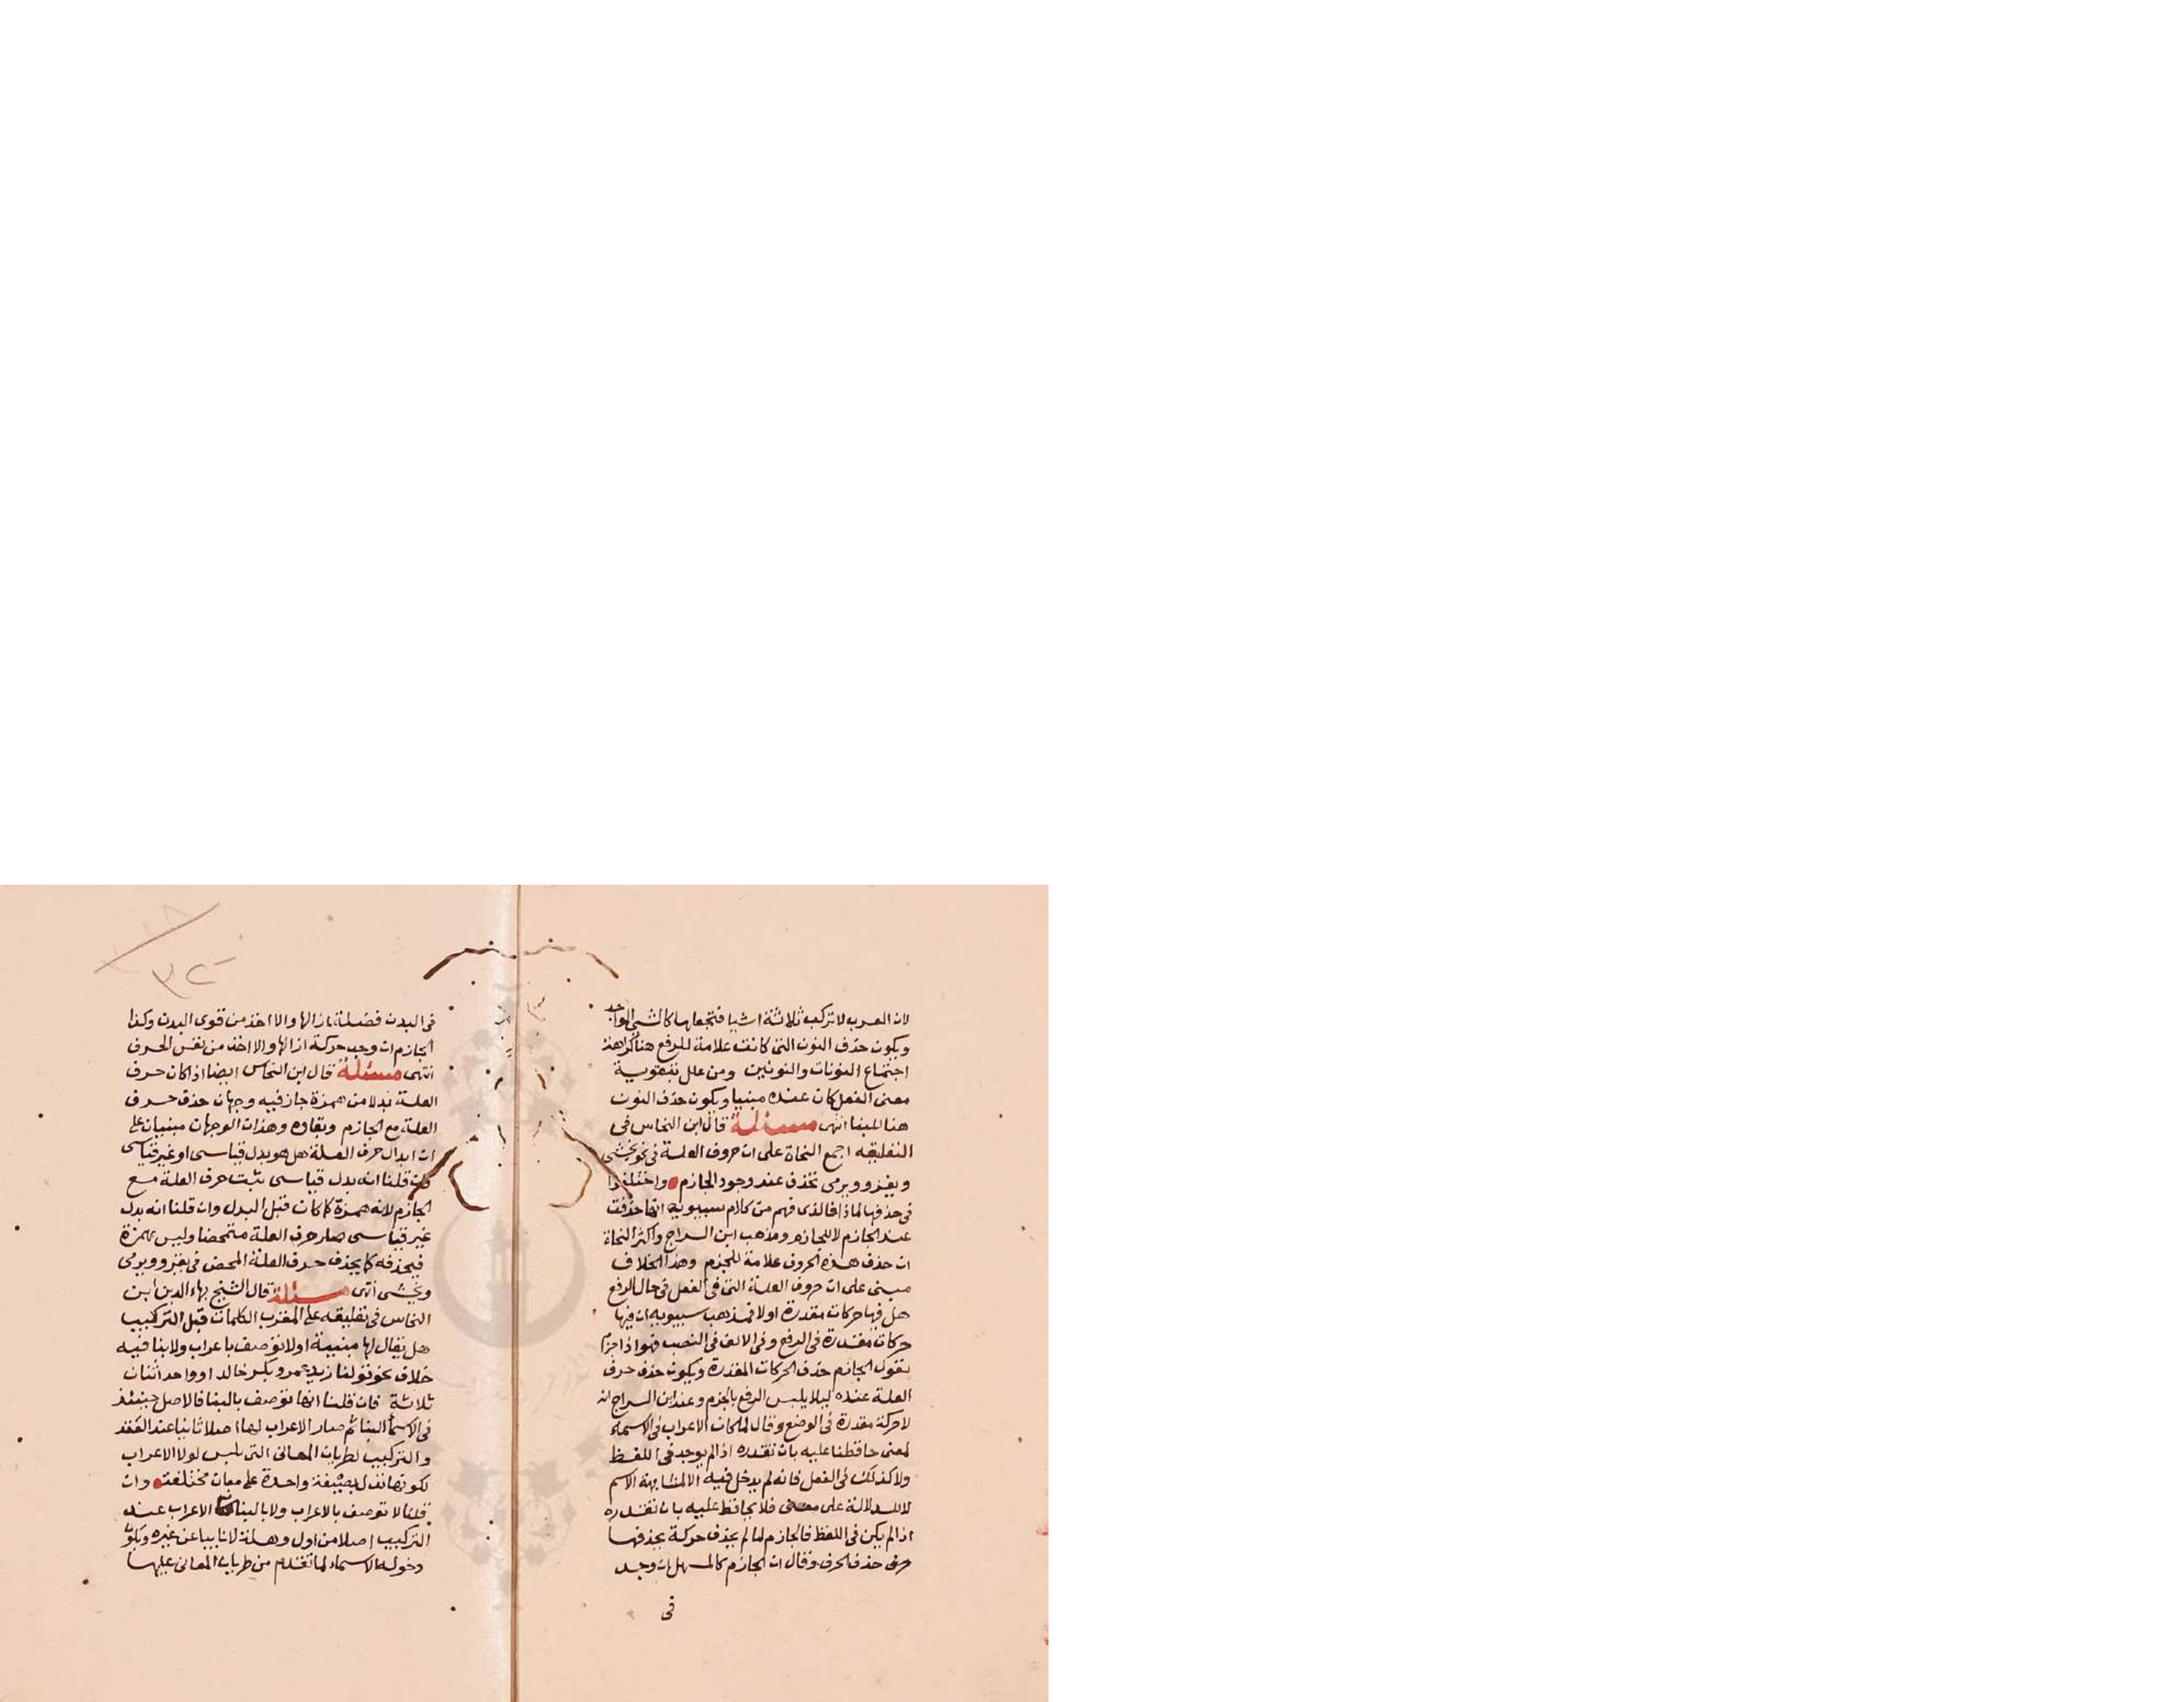 لان العرب لا تركب ثلاثة اشيا فتجعلها كالشي الواحد
ويكون حذف النون التى كانت علامة للرفع هنا كراهة
اجتماع النونات والنونين ومن علل بتقوية
معنى الفعل كان عنده مبنيا ويكون حذف النون
هنا للبنا انتهى مسئلة قال ابن النحاس فى
التعليقه اجمع النحاة على ان حروف العلة فى نحو يخشى
ويغزو ويرمى تحذف عند وجود الجازم واختلفوا
فى حذفها لماذا فالذى فهم من كلام سيبويه انها حذفت
عند الجازم لا للجازم ومذهب ابن السراج واكثر النحاة
ان حذف هذه الحروف علامة للجزم وهذا الخلاف
مبنى على ان حروف العلة التى فى الفعل فى حال الرفع
هل فيها حركات مقدرة اولا فمذهب سيبويه ان فيها
حركات مقدرة فى الرفع وفى الالف فى النصب فهو اذا جزم
يقول الجازم حذف الحركات المقدرة ويكون حذف حرف
العلة عنده ليلا يلبس الرفع بالجزم وعند ابن السراج انه
لا حركة مقدرة فى الوضع وقال لما كان الاعراب فى الاسماء
لمعنى حافظنا عليه بان نقدره اذا لم يوجد فى اللفظ
ولا كذلك فى الفعل فانه لم يدخل فيه الا لمشابهة الاسم
لا للدلالة على معنى فلا يحافظ عليه بان نقدره
اذا لم يكن فى اللفظ فالجازم لما لم يجذف حركة بحذفها
حذف الحرف وقال ان الجازم كالمسهل ان وجد
فى
فى البدن فضلة ازالها والا اخذ من قوى البدن وكذا
الجازم ان وجد حركة ازالها والا اخذ من نفس الحرف
انتهى مسئلة قال ابن النحاس ايضا اذا كان حرف
العلة بدلا من همزة جاز فيه وجهان حذف حرف
العلة مع الجازم وبقاوه وهذان الوجهان مبنيان على
ان ابدال حرف العلة هل هو بدل قياسى او غير قياسى
فان قلنا انه بدل قياسى ثبت حرف العلة مع
الجازم لانه همزة كما كان قبل البدل وان قلنا انه بدل
غير قياسى صار حرف العلة متمحضا وليس بهمزة
فيحذفه كما يحذف حرف العلة المحض فى يغزو ويرمى
ويخشى انتهى مسئلة قال الشيخ بهاء الدين ابن
النحاس فى تعليقه على المقرب الكلمات قبل التركيب
هل يقال لها مبنية اولا توصف باعراب ولا بنا فيه
خلاف نحو قولنا زيد عمرو بكر خالد او واحد اثنان
ثلاثة فان قلنا انها توصف بالبنا فالاصل حينئذ
فى الاسماء البنا ثم صار الاعراب لها اصلا ثانيا عند العقد
والتركيب لطريان المعانى التى تلبس لولا الاعراب
لكونها تدل بصيغة واحدة على معان مختلفة وان
قلنا لا توصف بالاعراب ولا بالبنا كان الاعراب عند
التركيب اصلا من اول وهلة لا نايبا عن غيره ويكون
دخوله الاسماء لما تقدم من طريان المعانى عليها